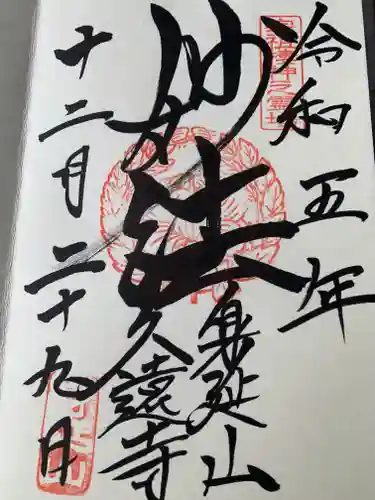 令和五年
妙法
身延山
久遠寺
十二月二十九日